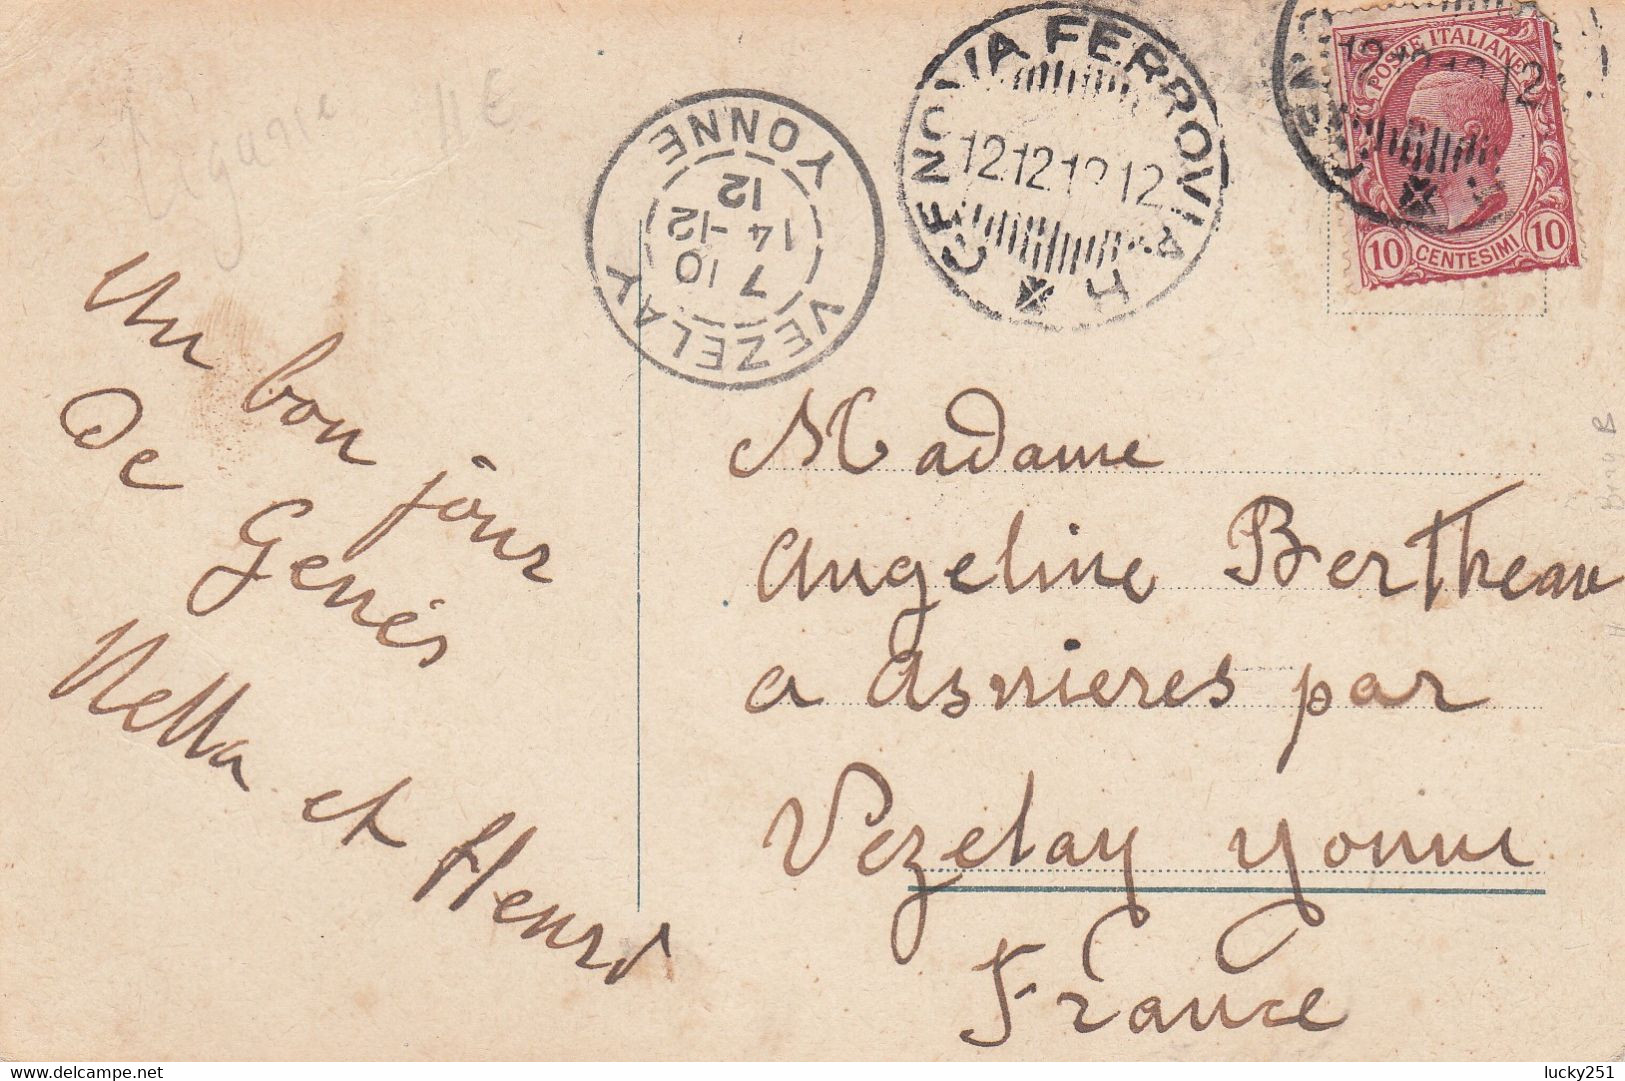 Ligurie 11 E
GENOVA FERROVIA H
12 12 12 12
POSTE ITALIANE
10 CENTESIMI 10
YONNE
12
14-12
7 10
VEZELAY
Un bon jour
De Genès
Nella et Henri
Madame
Angeline Bertheau
a Asnieres par
Vezelay Yonne
France
delcampe.net
lucky251